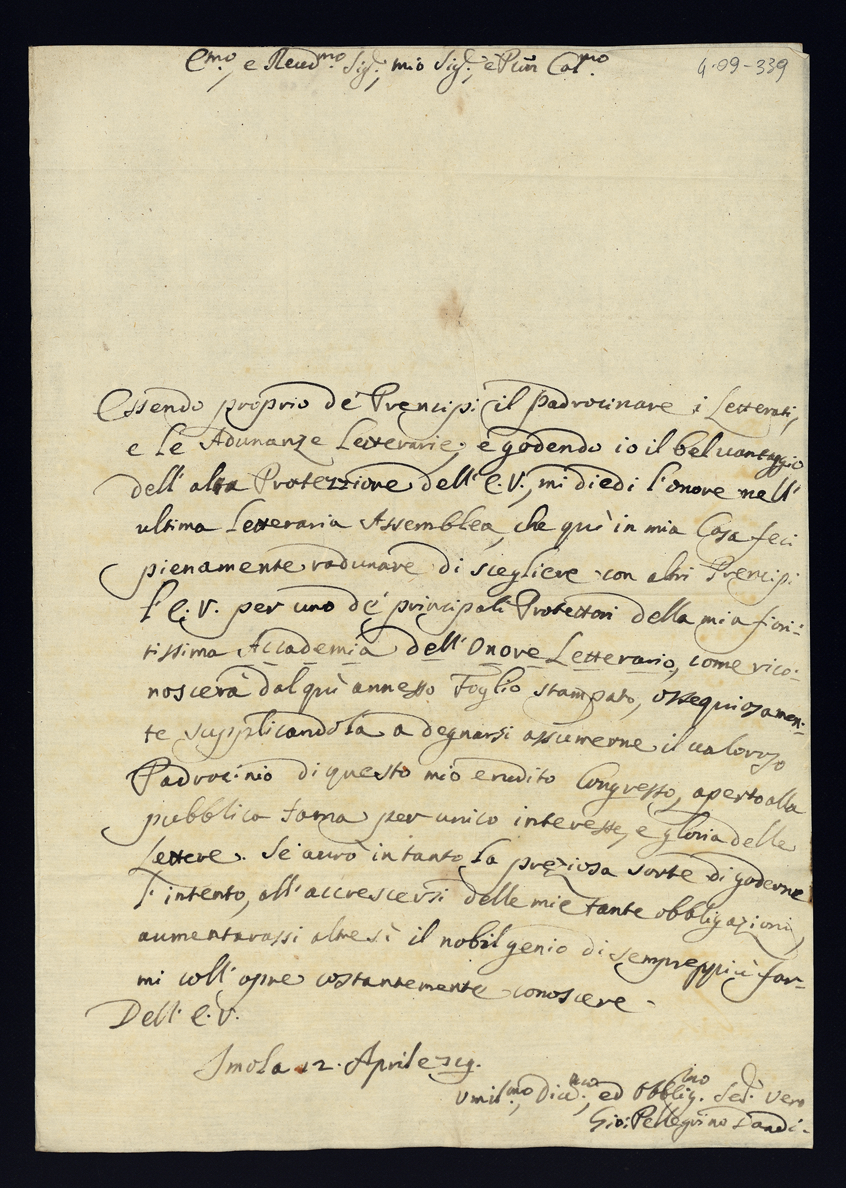 E.mo, e Reud.mo Sig.r, mio Sig.r, e Pñn Col.mo
4.09-339
Essendo proprio de' Prencipi il Padrocinare i Letterati,
e le Adunanze Letterarie; e godendo io il bel uantaggio
dell' alta Protezzione dell' E.V., mi diedi l'onore nell'
ultima Letteraria Assemblea, che quì in mia Casa feci
pienamente radunare di scegliere con altri Prencipi
l'E.V. per uno de' principali Protettori della mia fiori:
tissima Accademia dell' Onore Letterario, come rico:
noscerà dal quì annesso Foglio stampato, ossequiosamen:
te supplicandola a degnarsi assumerne il ualoroso
Padrocinio di questo mio erudito Congresso, aperto alla
pubblica fama per unico interesse, e gloria delle
Lettere. Se aurò intanto la preziosa sorte di goderne
l'intento, all' accrescersi delle mie tante obbligazioni,
aumentarassi altresì il nobil genio di sempreppiù far-
mi coll' opre costantemente conoscere.
Dell' E.V.
Imola 12. Aprile 719.
Umil.mo, Diu.mo, ed Obblig.mo Ser. Vero
Gio: Pellegrino Dandi.